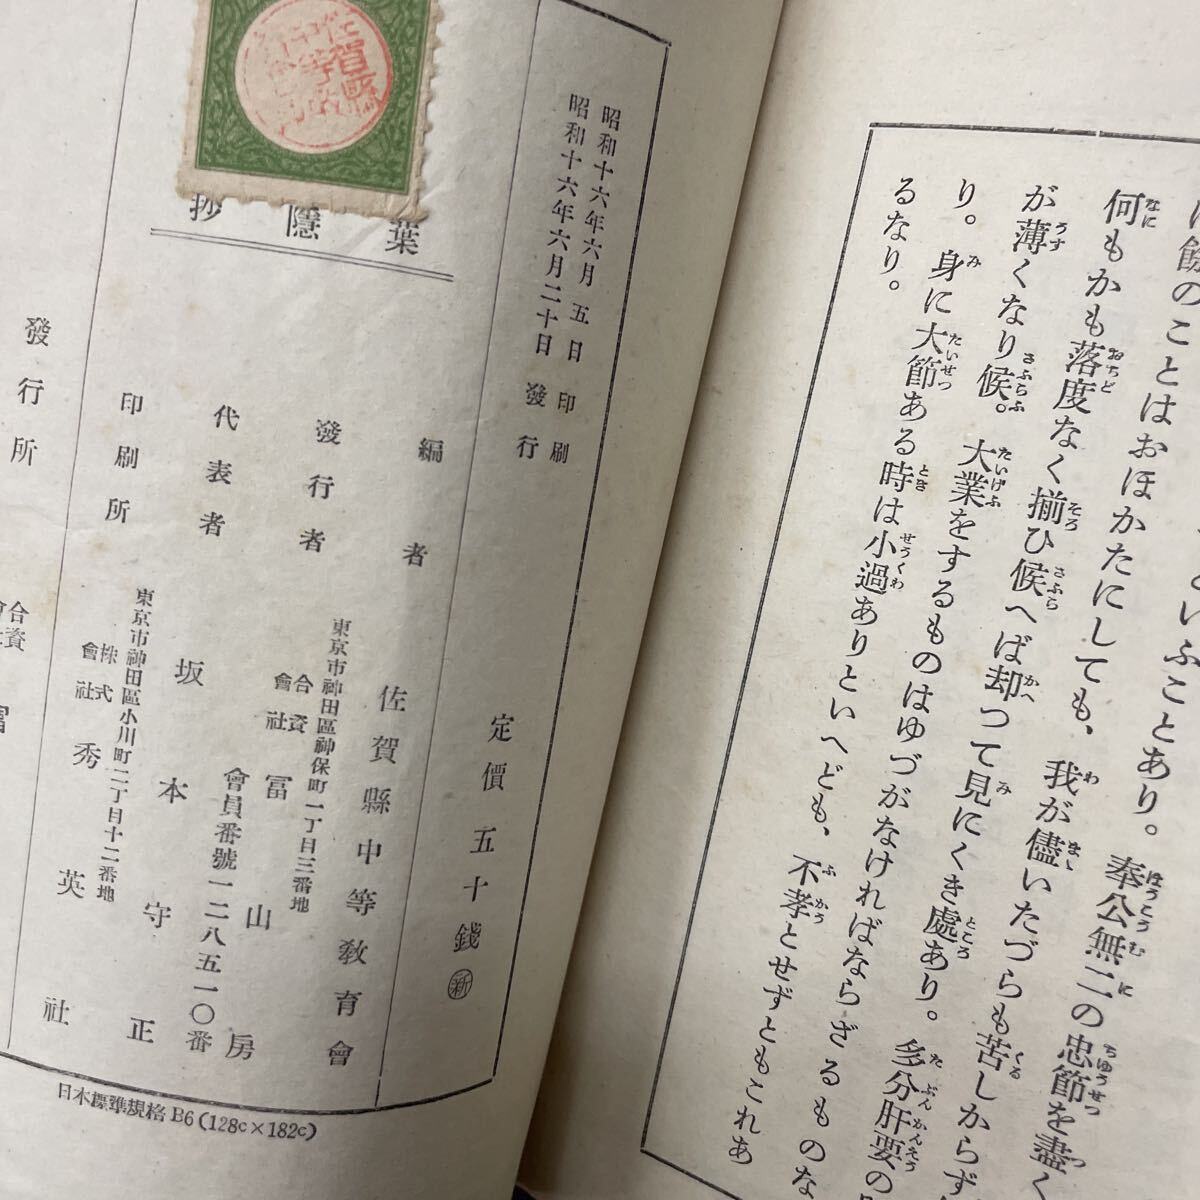 餘のことはおほかたにしても、我が儘いたづらも苦しからず
いふことあり。奉公無二の忠節を盡く
何もかも落度なく揃ひ候へば却つて見にくき處あり。多分肝要の
が薄くなり候。大業をするものはゆづがなければならざるものな
り。身に大節ある時は小過ありといへども、不孝とせずともこれあ
るなり。
昭和十六年六月五日印刷
昭和十六年六月二十日發行
定價五十錢 新
葉隱抄
編者 佐賀縣中等敎育會
東京市神田區神保町一丁目三番地
發行者 合資會社 冨山房
會員番號一二八五一〇番
代表者 坂本守正
東京市神田區小川町二丁目十二番地
印刷所 株式會社 秀英社
發行所 合資
日本標準規格B6(128c×182c)
佐賀縣中等